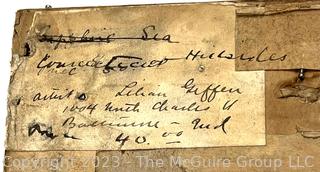 Sapphire Sea
Connecticut Hillsides
artist Lilian Giffen
1004 North Charles St
Baltimore - Md
40.00
Copyright 2023 - The McGuire Group LLC